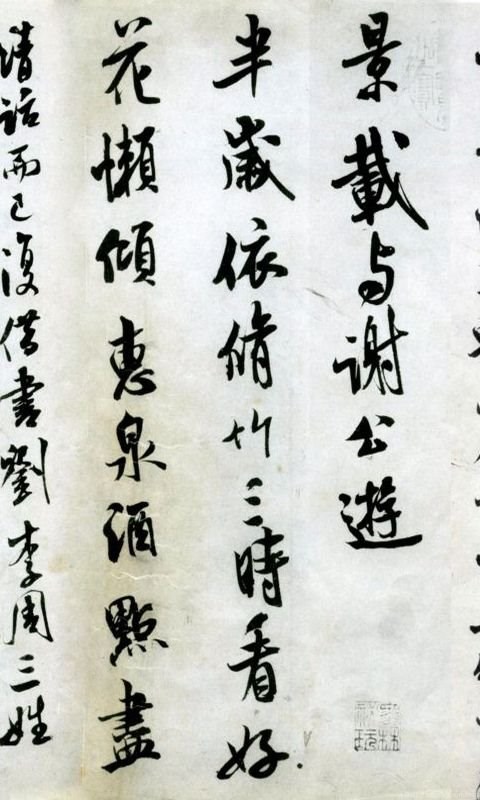 景載与謝公遊
半歲依脩竹三時看好
花懶傾惠泉酒點盡
清話而已復借書劉李周三姓